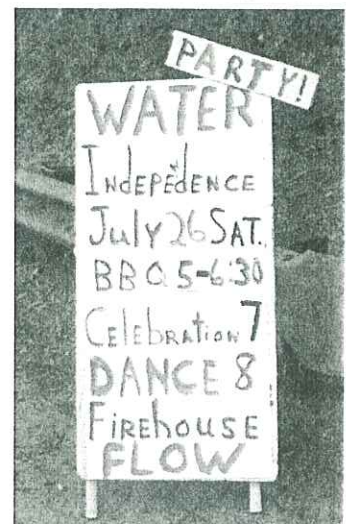 PARTY!
WATER
INDEPĖDENCE
July 26 SAT.
BBQ 5-6:30
CELEBRATION 7
DANCE 8
FIREhOUSE
FLOW